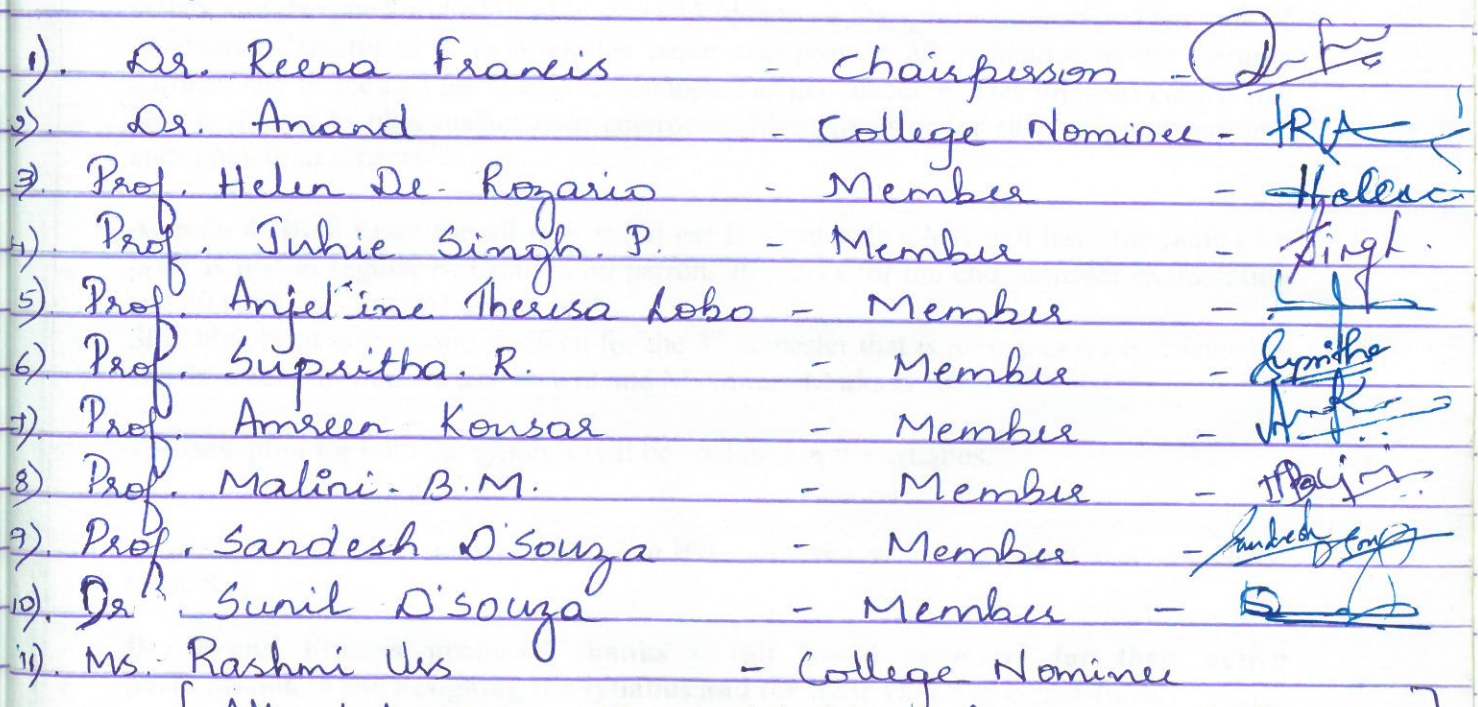 1). Dr. Reena Francis - Chairperson -
2). Dr. Anand - College Nominee -
3). Prof. Helen De-Rozario - Member - Helen
4) Prof. Juhie Singh. P - Member - Singh.
5) Prof. Anjeline Theresa Lobo - Member -
6) Prof. Supritha. R. - Member - Supritha
7). Prof. Amreen Kousar - Member -
8) Prof. Malini. B.M. - Member -
9). Prof. Sandesh D'Souza - Member - Sandesh
10). Dr. Sunil D'souza - Member -
11). Ms. Rashmi Urs - College Nominee